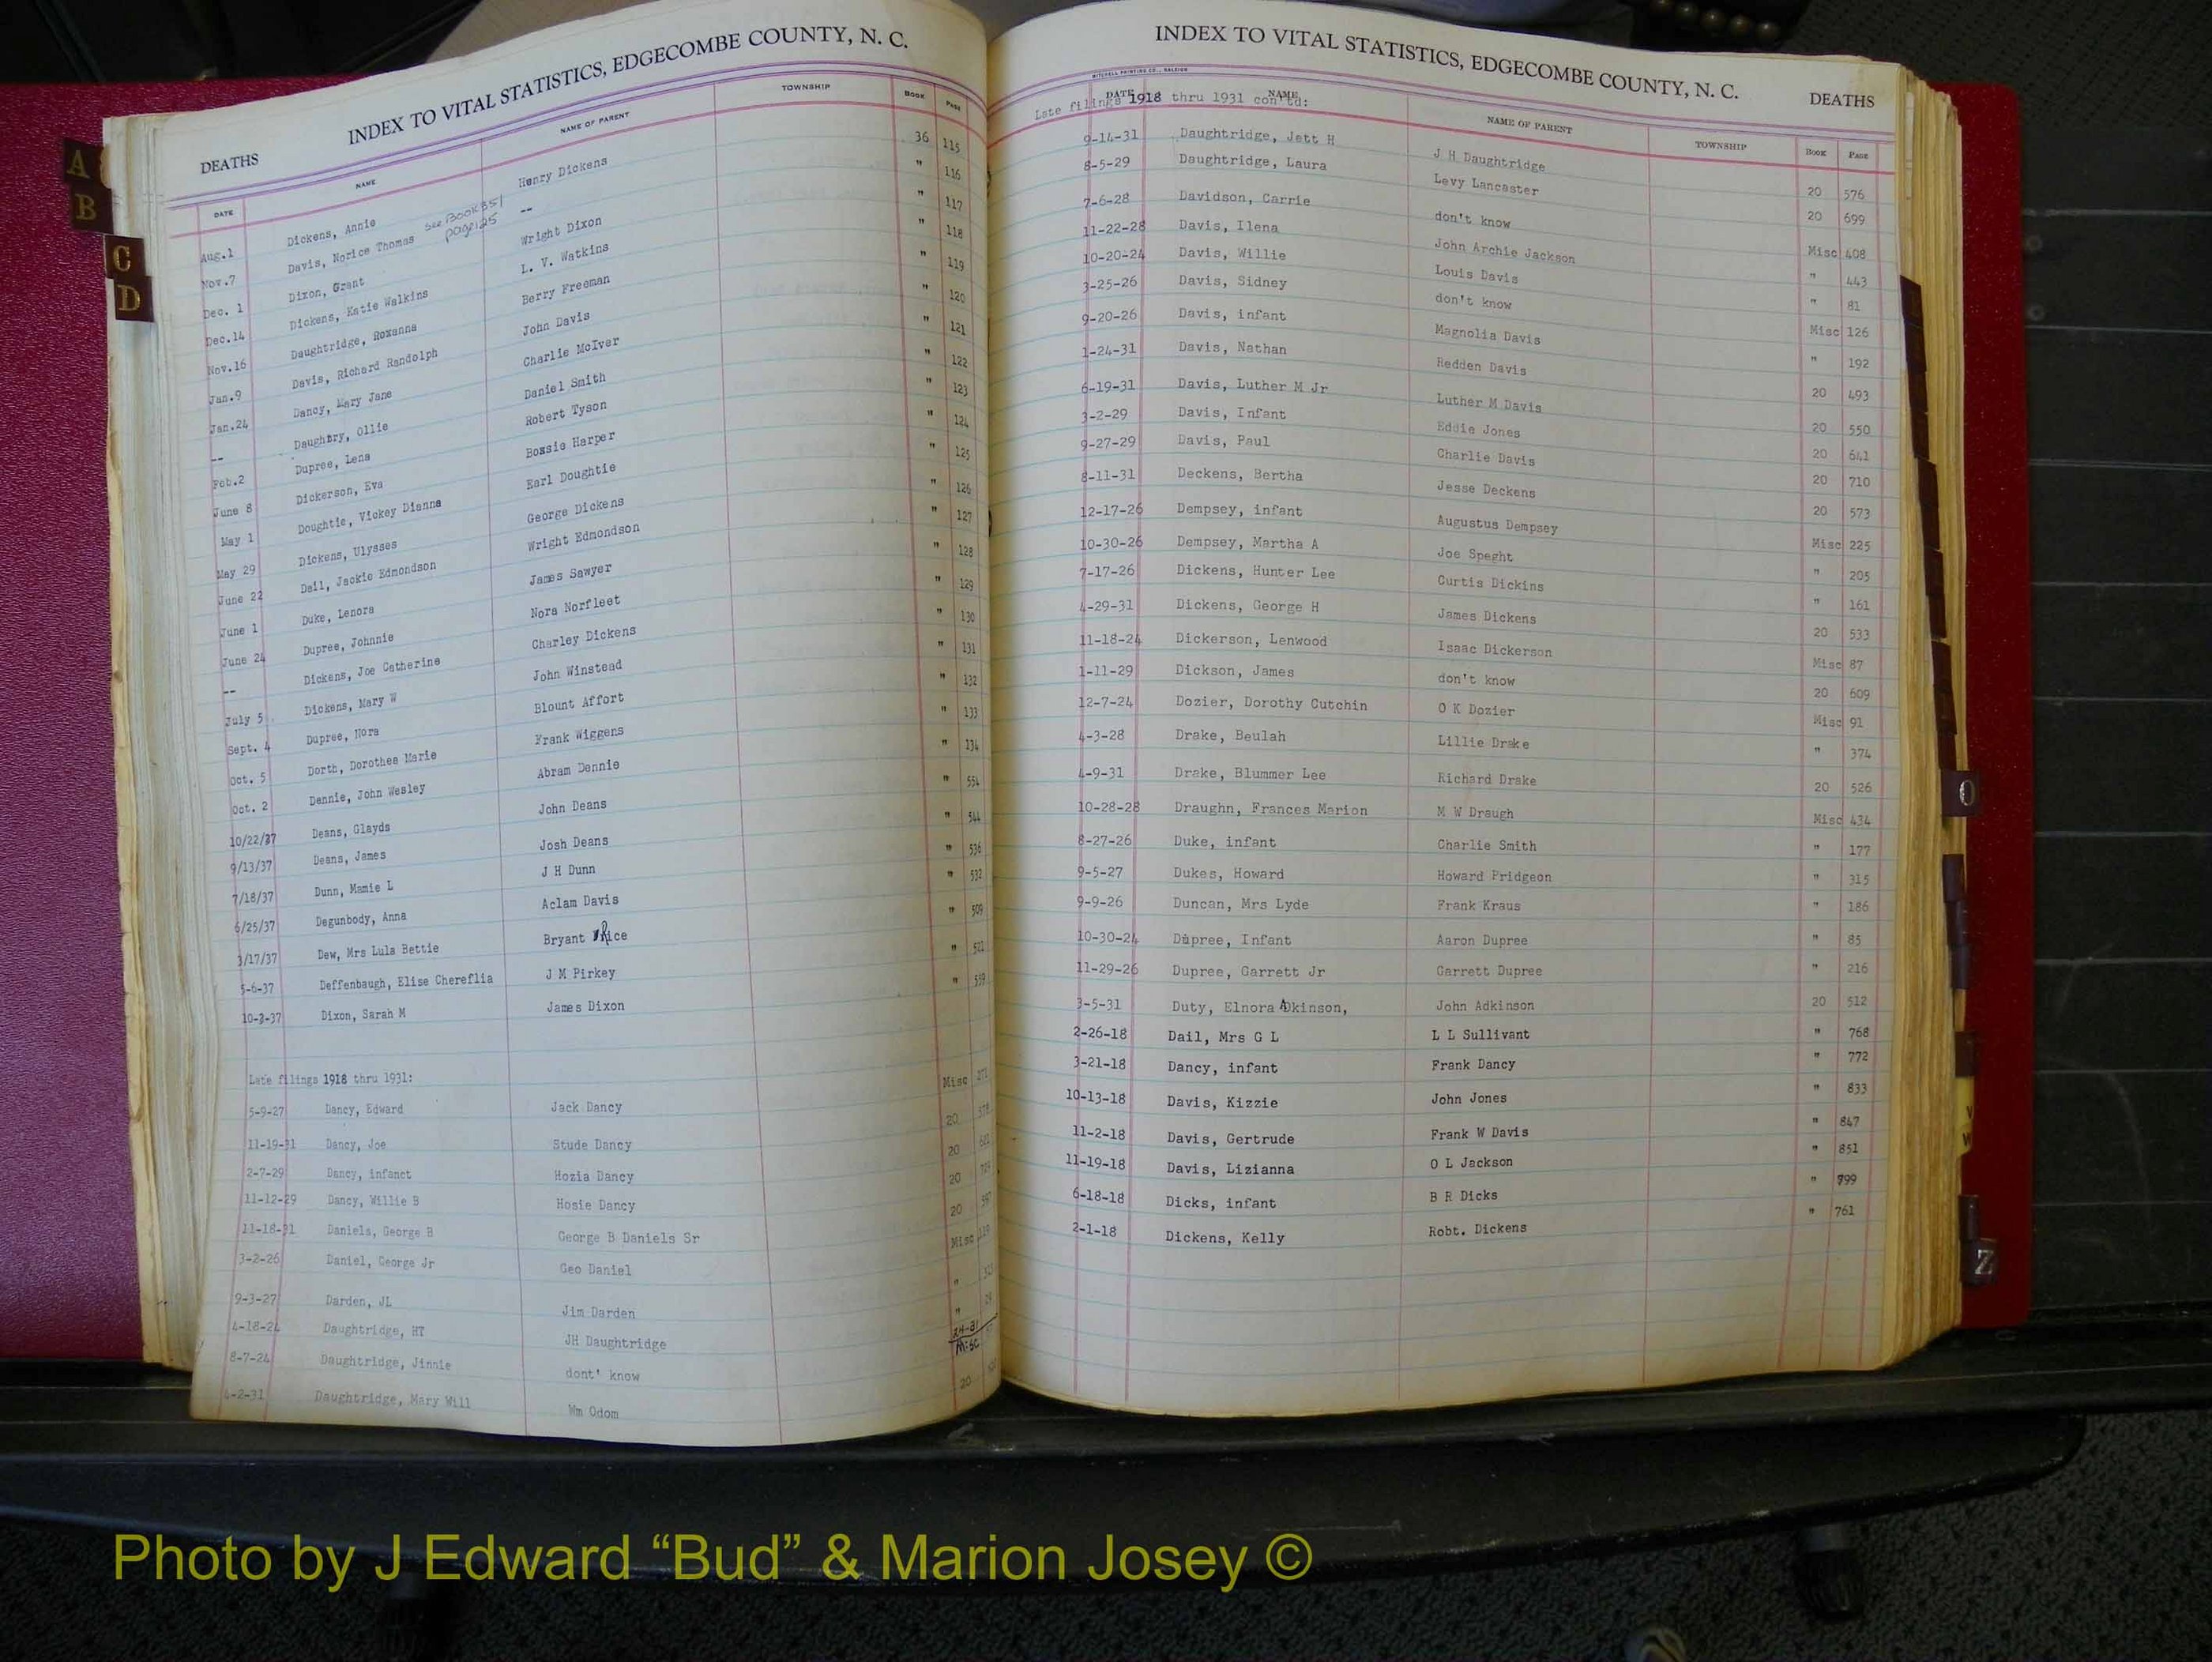 INDEX TO VITAL STATISTICS, EDGECOMBE COUNTY, N. C.
DEATHS
DATE NAME NAME OF PARENT TOWNSHIP BOOK PAGE
Aug.1 Dickens, Annie Henry Dickens 36 115
Nov.7 Davis, Norice Thomas see Book B5 page 125 -- " 116
Dec. 1 Dixon, Grant Wright Dixon " 117
Dec.14 Dickens, Katie Walkins L. V. Watkins " 118
Nov.16 Daughtridge, Roxanna Berry Freeman " 119
Jan.9 Davis, Richard Randolph John Davis " 120
Jan.24 Dancy, Mary Jane Charlie McIver " 121
-- Daughtry, Ollie Daniel Smith " 122
Feb.2 Dupree, Lena Robert Tyson " 123
June 8 Dickerson, Eva Bossie Harper " 124
May 1 Doughtie, Vickey Dianna Earl Doughtie " 125
May 29 Dickens, Ulysses George Dickens " 126
June 22 Dail, Jackie Edmondson Wright Edmondson " 127
June 1 Duke, Lenora James Sawyer " 128
June 24 Dupree, Johnnie Nora Norfleet " 129
-- Dickens, Joe Catherine Charley Dickens " 130
July 5 Dickens, Mary W John Winstead " 131
Sept. 4 Dupree, Nora Blount Affort " 132
Oct. 5 Dorth, Dorothea Marie Frank Wiggens " 133
Oct. 2 Dennie, John Wesley Abram Dennie " 134
10/22/37 Deans, Glayds John Deans " 554
9/13/37 Deans, James Josh Deans " 544
7/18/37 Dunn, Mamie L J H Dunn " 536
6/25/37 Degunbody, Anna Aclam Davis " 532
3/17/37 Dew, Mrs Lula Bettie Bryant Rice " 509
5-6-37 Deffenbaugh, Elise Chereflia J M Pirkey " 521
10-3-37 Dixon, Sarah M James Dixon " 559
Late filings 1918 thru 1931:
5-9-27 Dancy, Edward Jack Dancy Misc 271
11-19-31 Dancy, Joe Stude Dancy 20
2-7-29 Dancy, infanct Hozia Dancy 20
11-12-29 Dancy, Willie B Hosie Dancy 20
11-18-31 Daniels, George B George B Daniels Sr 20
3-2-26 Daniel, George Jr Geo Daniel Misc 119
9-3-27 Darden, JL Jim Darden "
4-18-24 Daughtridge, HT JH Daughtridge "
8-7-24 Daughtridge, Jinnie dont' know Misc
4-2-31 Daughtridge, Mary Will Wm Odom 20
INDEX TO VITAL STATISTICS, EDGECOMBE COUNTY, N. C.
DEATHS
MITCHELL PRINTING CO., RALEIGH
DATE NAME NAME OF PARENT TOWNSHIP BOOK PAGE
Late filings 1918 thru 1931 con'td:
9-14-31 Daughtridge, Jett H J H Daughtridge 20 576
8-5-29 Daughtridge, Laura Levy Lancaster 20 699
7-6-28 Davidson, Carrie don't know Misc 408
11-22-28 Davis, Ilena John Archie Jackson " 443
10-20-24 Davis, Willie Louis Davis " 81
3-25-26 Davis, Sidney don't know Misc 126
9-20-26 Davis, infant Magnolia Davis " 192
1-24-31 Davis, Nathan Redden Davis 20 493
6-19-31 Davis, Luther M Jr Luther M Davis 20 550
3-2-29 Davis, Infant Eddie Jones 20 641
9-27-29 Davis, Paul Charlie Davis 20 710
8-11-31 Deckens, Bertha Jesse Deckens 20 573
12-17-26 Dempsey, infant Augustus Dempsey Misc 225
10-30-26 Dempsey, Martha A Joe Speght " 205
7-17-26 Dickens, Hunter Lee Curtis Dickins " 161
4-29-31 Dickens, George H James Dickens 20 533
11-18-24 Dickerson, Lenwood Isaac Dickerson Misc 87
1-11-29 Dickson, James don't know 20 609
12-7-24 Dozier, Dorothy Cutchin O K Dozier Misc 91
4-3-28 Drake, Beulah Lillie Drake " 374
4-9-31 Drake, Blummer Lee Richard Drake 20 526
10-28-28 Draughn, Frances Marion M W Draugh Misc 434
8-27-26 Duke, infant Charlie Smith " 177
9-5-27 Dukes, Howard Howard Pridgeon " 315
9-9-26 Duncan, Mrs Lyde Frank Kraus " 186
10-30-24 Dupree, Infant Aaron Dupree " 85
11-29-26 Dupree, Garrett Jr Garrett Dupree " 216
3-5-31 Duty, Elnora Adkinson, John Adkinson 20 512
2-26-18 Dail, Mrs G L L L Sullivant " 768
3-21-18 Dancy, infant Frank Dancy " 772
10-13-18 Davis, Kizzie John Jones " 833
11-2-18 Davis, Gertrude Frank W Davis " 847
11-19-18 Davis, Lizianna O L Jackson " 851
6-18-18 Dicks, infant B R Dicks " 799
2-1-18 Dickens, Kelly Robt. Dickens " 761
A
B
C
D
O
V
W
Z
Photo by J Edward “Bud” & Marion Josey ©